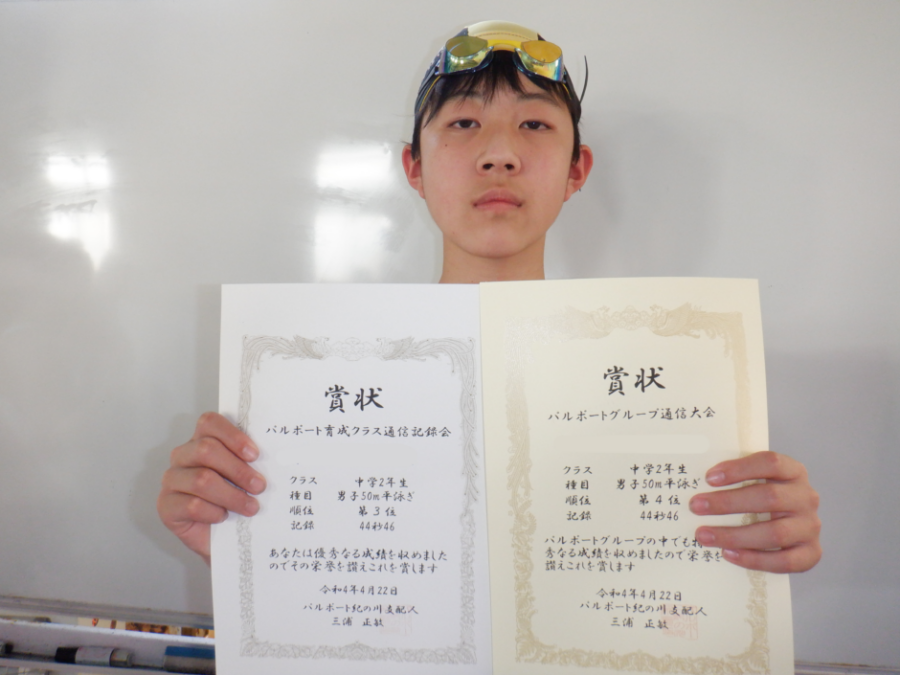 賞状
パルポート育成クラス通信記録会
クラス 中学2年生
種目 男子50m平泳ぎ
順位 第3位
記録 44秒46
あなたは優秀なる成績を収めました
のでその栄誉を讃えこれを賞します
令和4年4月22日
パルポート紀の川支配人
三浦 正敏
賞状
パルポートグループ通信大会
クラス 中学2年生
種目 男子50m平泳ぎ
順位 第4位
記録 44秒46
パルポートグループの中でも
秀なる成績を収めましたので栄誉を
讃えこれを賞します
令和4年4月22日
パルポート紀の川支配人
三浦 正敏